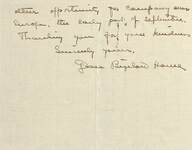 other opportunity for company
Europe, the early part of September.
Thanking you for your kindness
Sincerely yours,
Bigelow